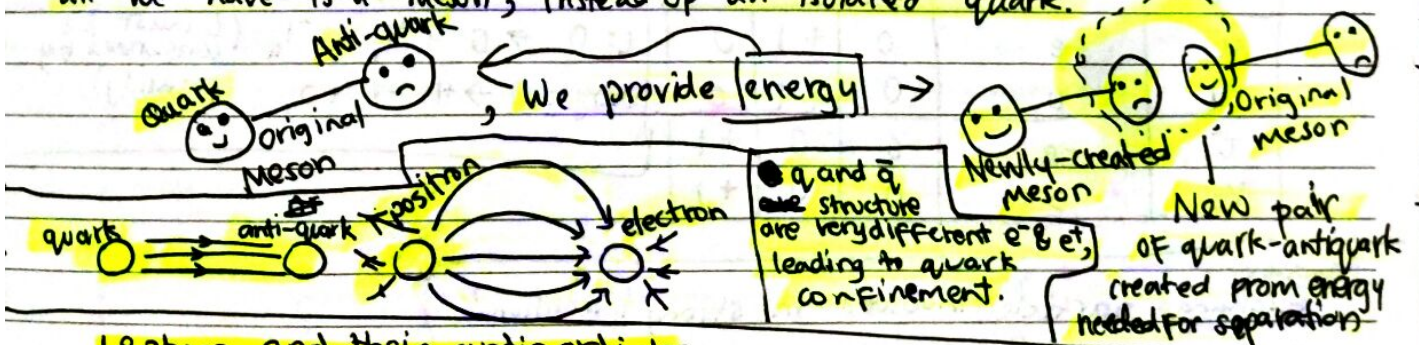 all we have is a meson, instead of an isolated quark.
Anti-quark
Quark
Original
Meson
, We provide energy →
Newly-created
meson
Original
meson
New pair
of quark-antiquark
created from energy
needed for separation
quark
anti-quark
positron
electron
q and q̄
structure
are very different e⁻ & e⁺,
leading to quark
confinement.